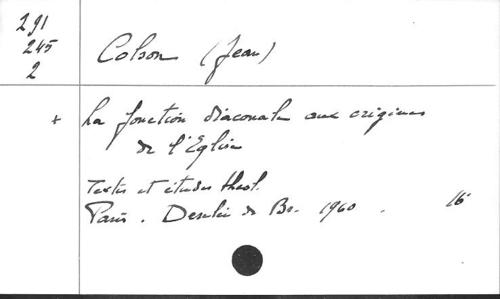 291
245
2
Colson (Jean)
+ La fonction diaconale aux origines
de l'Eglise
Textes et études théol.
Paris. Desclée de Br. 1960. 16